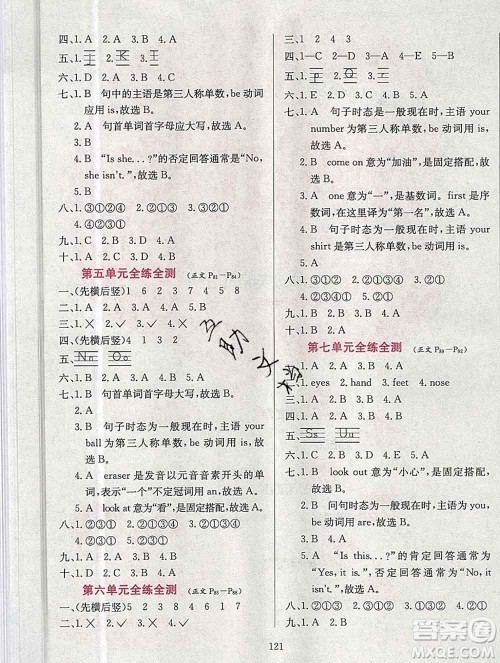 四、1. A  2. A  3. A  4. A  5. A
五、I  K  J
六、1. D  2. C  3. A  4. B
七、1. B  句中的主语是第三人称单数，be 动词
应用 is，故选 B。
2. A  句首单词首字母应大写，故选 A。
3. B
4. B  “Is she...?”的否定回答通常是“No,
she isn't.”，故选 B。
5. B
八、1. ③①②④  2. ①③②④
九、1. C  2. B  3. D  4. A
第五单元全练全测 （正文 P81—P84）
一、(先横后竖)  1  3  6  2  7  4  5  8
二、1. A  2. A  3. A  4. A  5. B
三、1. ✓  2. ✓  3. ✕  4. ✕
四、(先横后竖)  4  1  3  2
五、Nn  Oo
六、1. B  2. A  3. B  4. A
七、1. A  句首单词首字母大写，故选 A。
2. B
3. B  句子时态为一般现在时，主语 your
ball 为第三人称单数，be 动词用 is，
故选 B。
4. A  eraser 是发音以元音音素开头的单
词，表示“一个”不定冠词用 an，故选 A。
5. A  look at 意为“看”，是固定搭配，故
选 A。
八、1. ②③①  2. ①②③  3. ②①③
九、1. A  2. A  3. B  4. B
十、1. D  2. A  3. C  4. B
第六单元全练全测 （正文 P85—P88）
一、(先横后竖)  5  2  3  8  4  6  1  7
二、1. ✓  2. ✕  3. ✕  4. ✓
三、1  2  4  3
四、1—C  2—D  3—A  4—E  5—B
五、P  Q  R
六、1. D  2. C  3. A  4. B
七、1. A  句子时态是一般现在时，主语 your
number 为第三人称单数，be 动词用
is，故选 A。
2. B  come on 意为“加油”，是固定搭配，
故选 B。
3. A  one 意为“一”，是基数词。first 是序
数词，在这里译为“第一名”。故选 A。
4. B  句子时态为一般现在时，主语 your
shirt 是第三人称单数，be 动词用 is，
故选 B。
八、1. ①③②  2. ①③②  3. ①②③
九、1. C  2. A  3. B
十、1. A  2. A  3. A  4. B  5. A
第七单元全练全测 （正文 P89—P92）
一、1. eyes  2. hand  3. feet  4. nose
二、1. A  2. B  3. A  4. A  5. B
四、1. B  2. A  3. C  4. D
五、Ss  Uu
六、1. D  2. B  3. C  4. A
七、1. B  look out 意为“小心”，是固定搭配，
故选 B。
2. B  问句时态为一般现在时，主语为
you，be 动词用 are，故选 B。
3. A
4. A  “Is this...?”的肯定回答通常为
“Yes, it is.”，否定回答通常为“No,
it isn't.”，故选 A。
八、1. ①③②  2. ①②③  3. ①②③
九、1. A  2. B  3. B  4. A
121
互助文档
作业帮答案
MXQE.COM